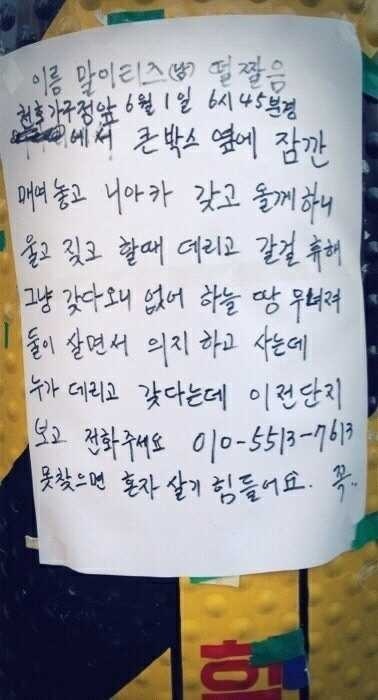 이름 말이티즈(남) 털짤음
천호가구정앞 6월1일 6시45분경
에서 큰박스 옆에 잠깐
매여놓고 니아카 갖고 올께하니
울고 짖고 할때 데리고 갈걸 휴해
그냥 갖다오니 없어 하늘 땅 무녀져
둘이 살면서 의지하고 사는데
누가 데리고 갖다는데 이전단지
보고 전화주세요 010-5513-7613
못찾으면 혼자 살기 힘들어요. 꼭..